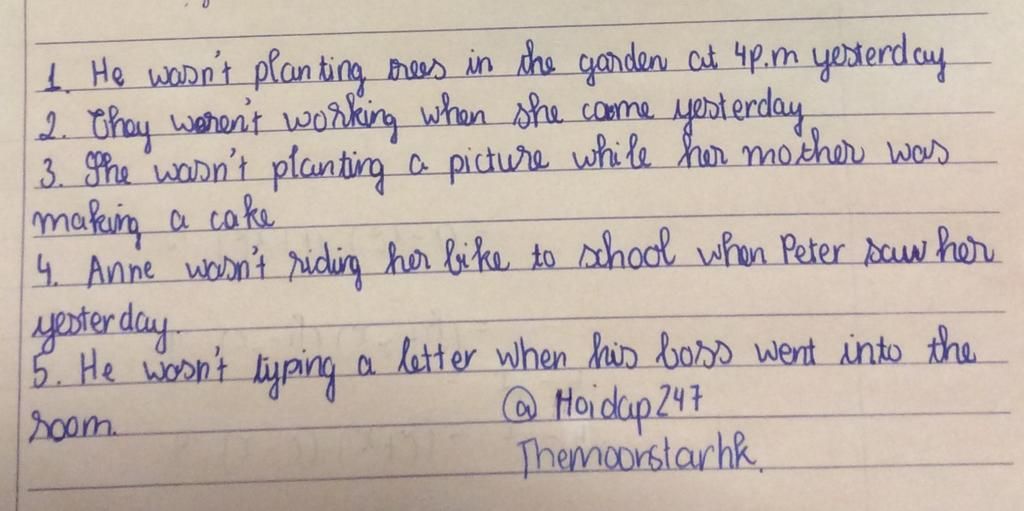 1. He wasn't planting trees in the garden at 4p.m yesterday
2. They weren't working when she came yesterday
3. She wasn't planting a picture while her mother was
making a cake
4. Anne wasn't riding her bike to school when Peter saw her
yesterday.
5. He wasn't typing a letter when his boss went into the
room.
@ Hoidap247
Themoonstarhk.